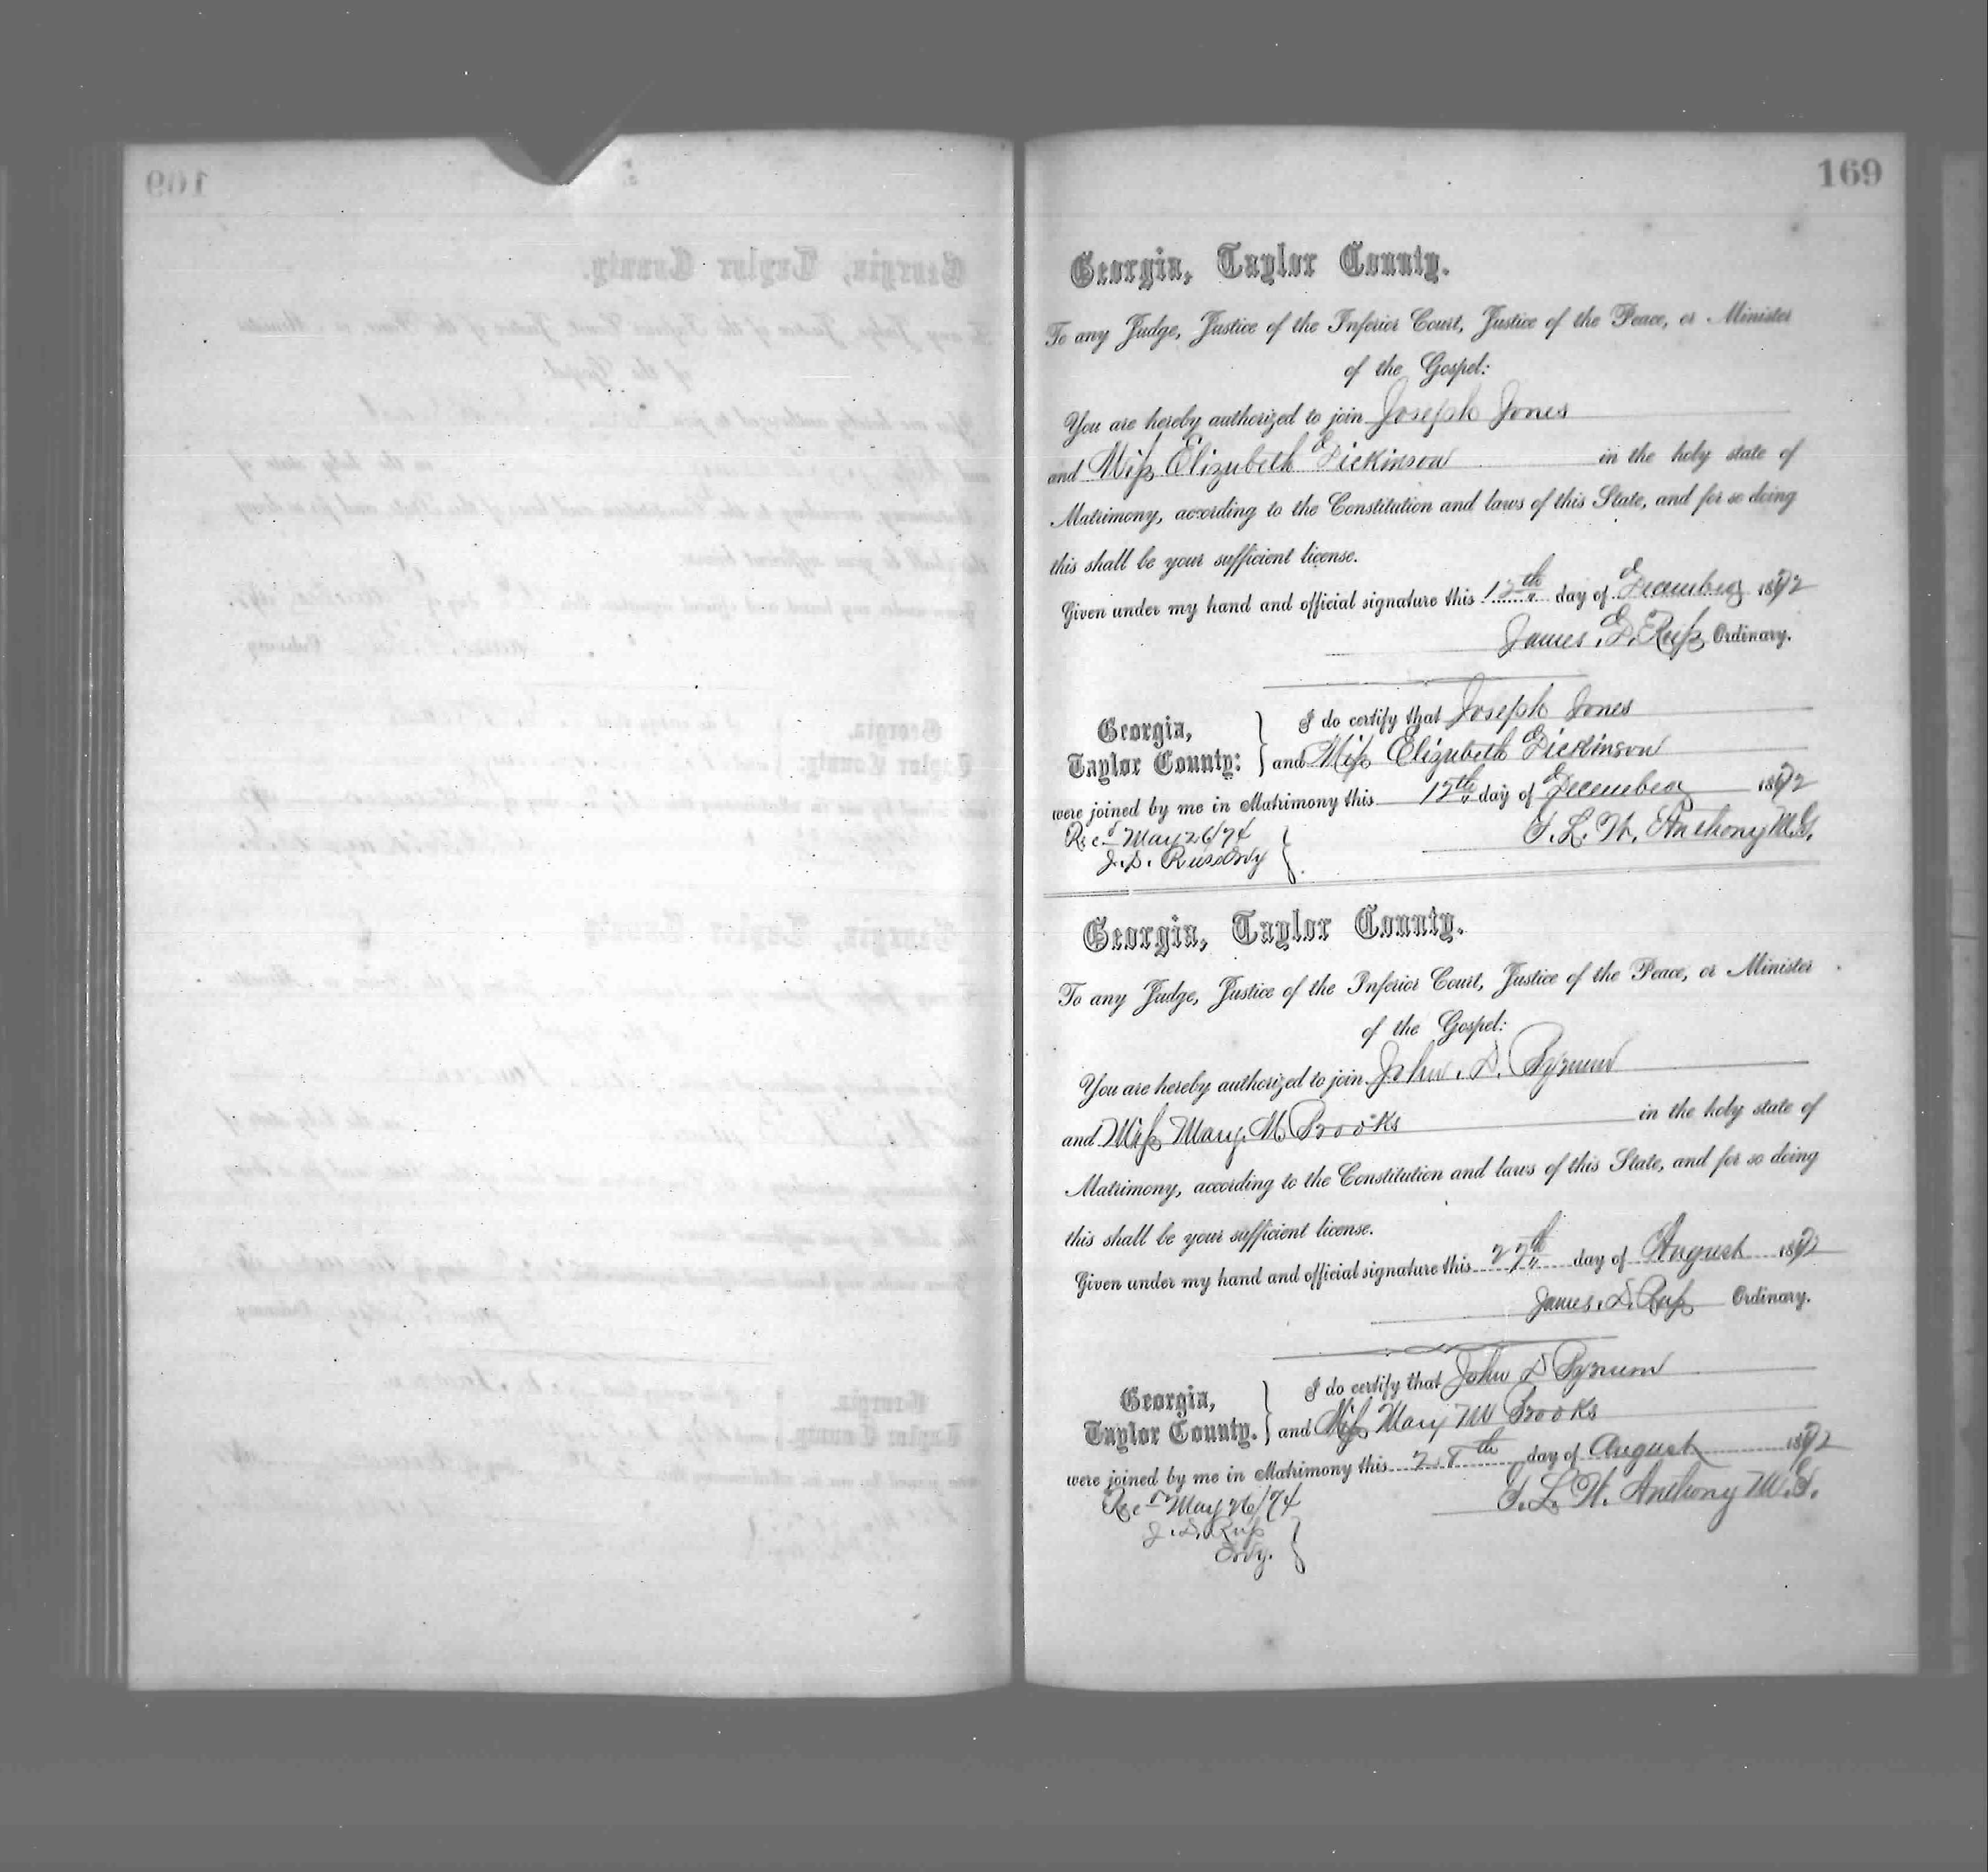 169
Georgia, Taylor County.
To any Judge, Justice of the Inferior Court, Justice of the Peace, or Minister
of the Gospel:
You are hereby authorized to join Joseph Jones
and Miss Elizabeth Dickinson in the holy state of
Matrimony, according to the Constitution and laws of this State, and for so doing
this shall be your sufficient license.
Given under my hand and official signature this 12th day of December 1872
James. D. Russ Ordinary.
Georgia,
Taylor County:
I do certify that Joseph Jones
and Miss Elizabeth Dickinson
were joined by me in Matrimony this 12th day of December 1872
Recd May 26/74
J. D. Russ Ordy
J. L. W. Anthony M.G.
Georgia, Taylor County.
To any Judge, Justice of the Inferior Court, Justice of the Peace, or Minister
of the Gospel:
You are hereby authorized to join John. D. Bynum
and Miss Mary. M. Brooks in the holy state of
Matrimony, according to the Constitution and laws of this State, and for so doing
this shall be your sufficient license.
Given under my hand and official signature this 27th day of August 1872
James. D. Russ Ordinary.
Georgia,
Taylor County.
I do certify that John D Bynum
and Miss Mary M Brooks
were joined by me in Matrimony this 28th day of August 1872
Recd May 26/74
J. D. Russ
Ordy.
J. L. W. Anthony M.G.